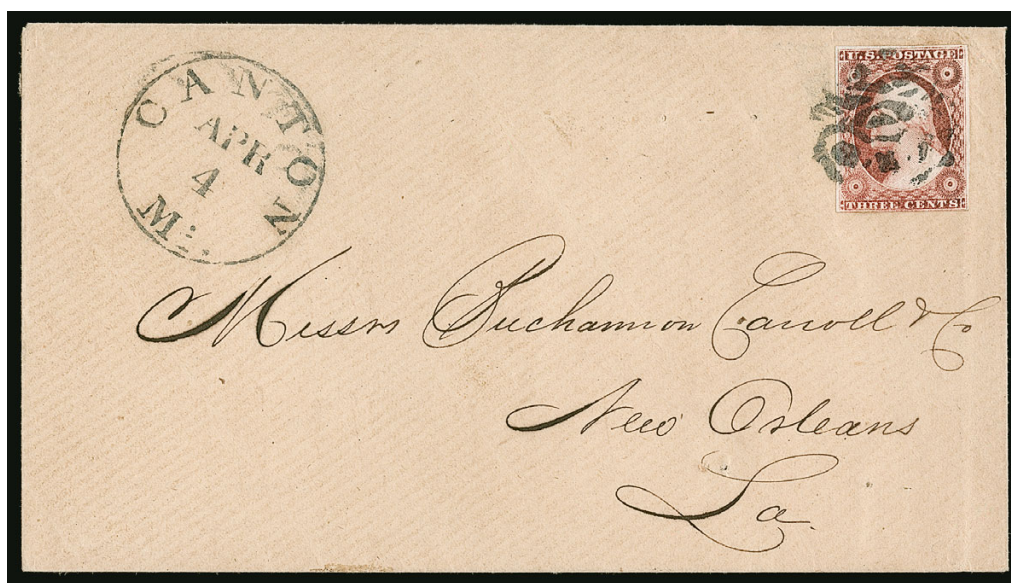 CANTON
APR
4
Mi.
U.S. POSTAGE
THREE CENTS
Messrs Buchannon Carroll & Co
New Orleans
La.